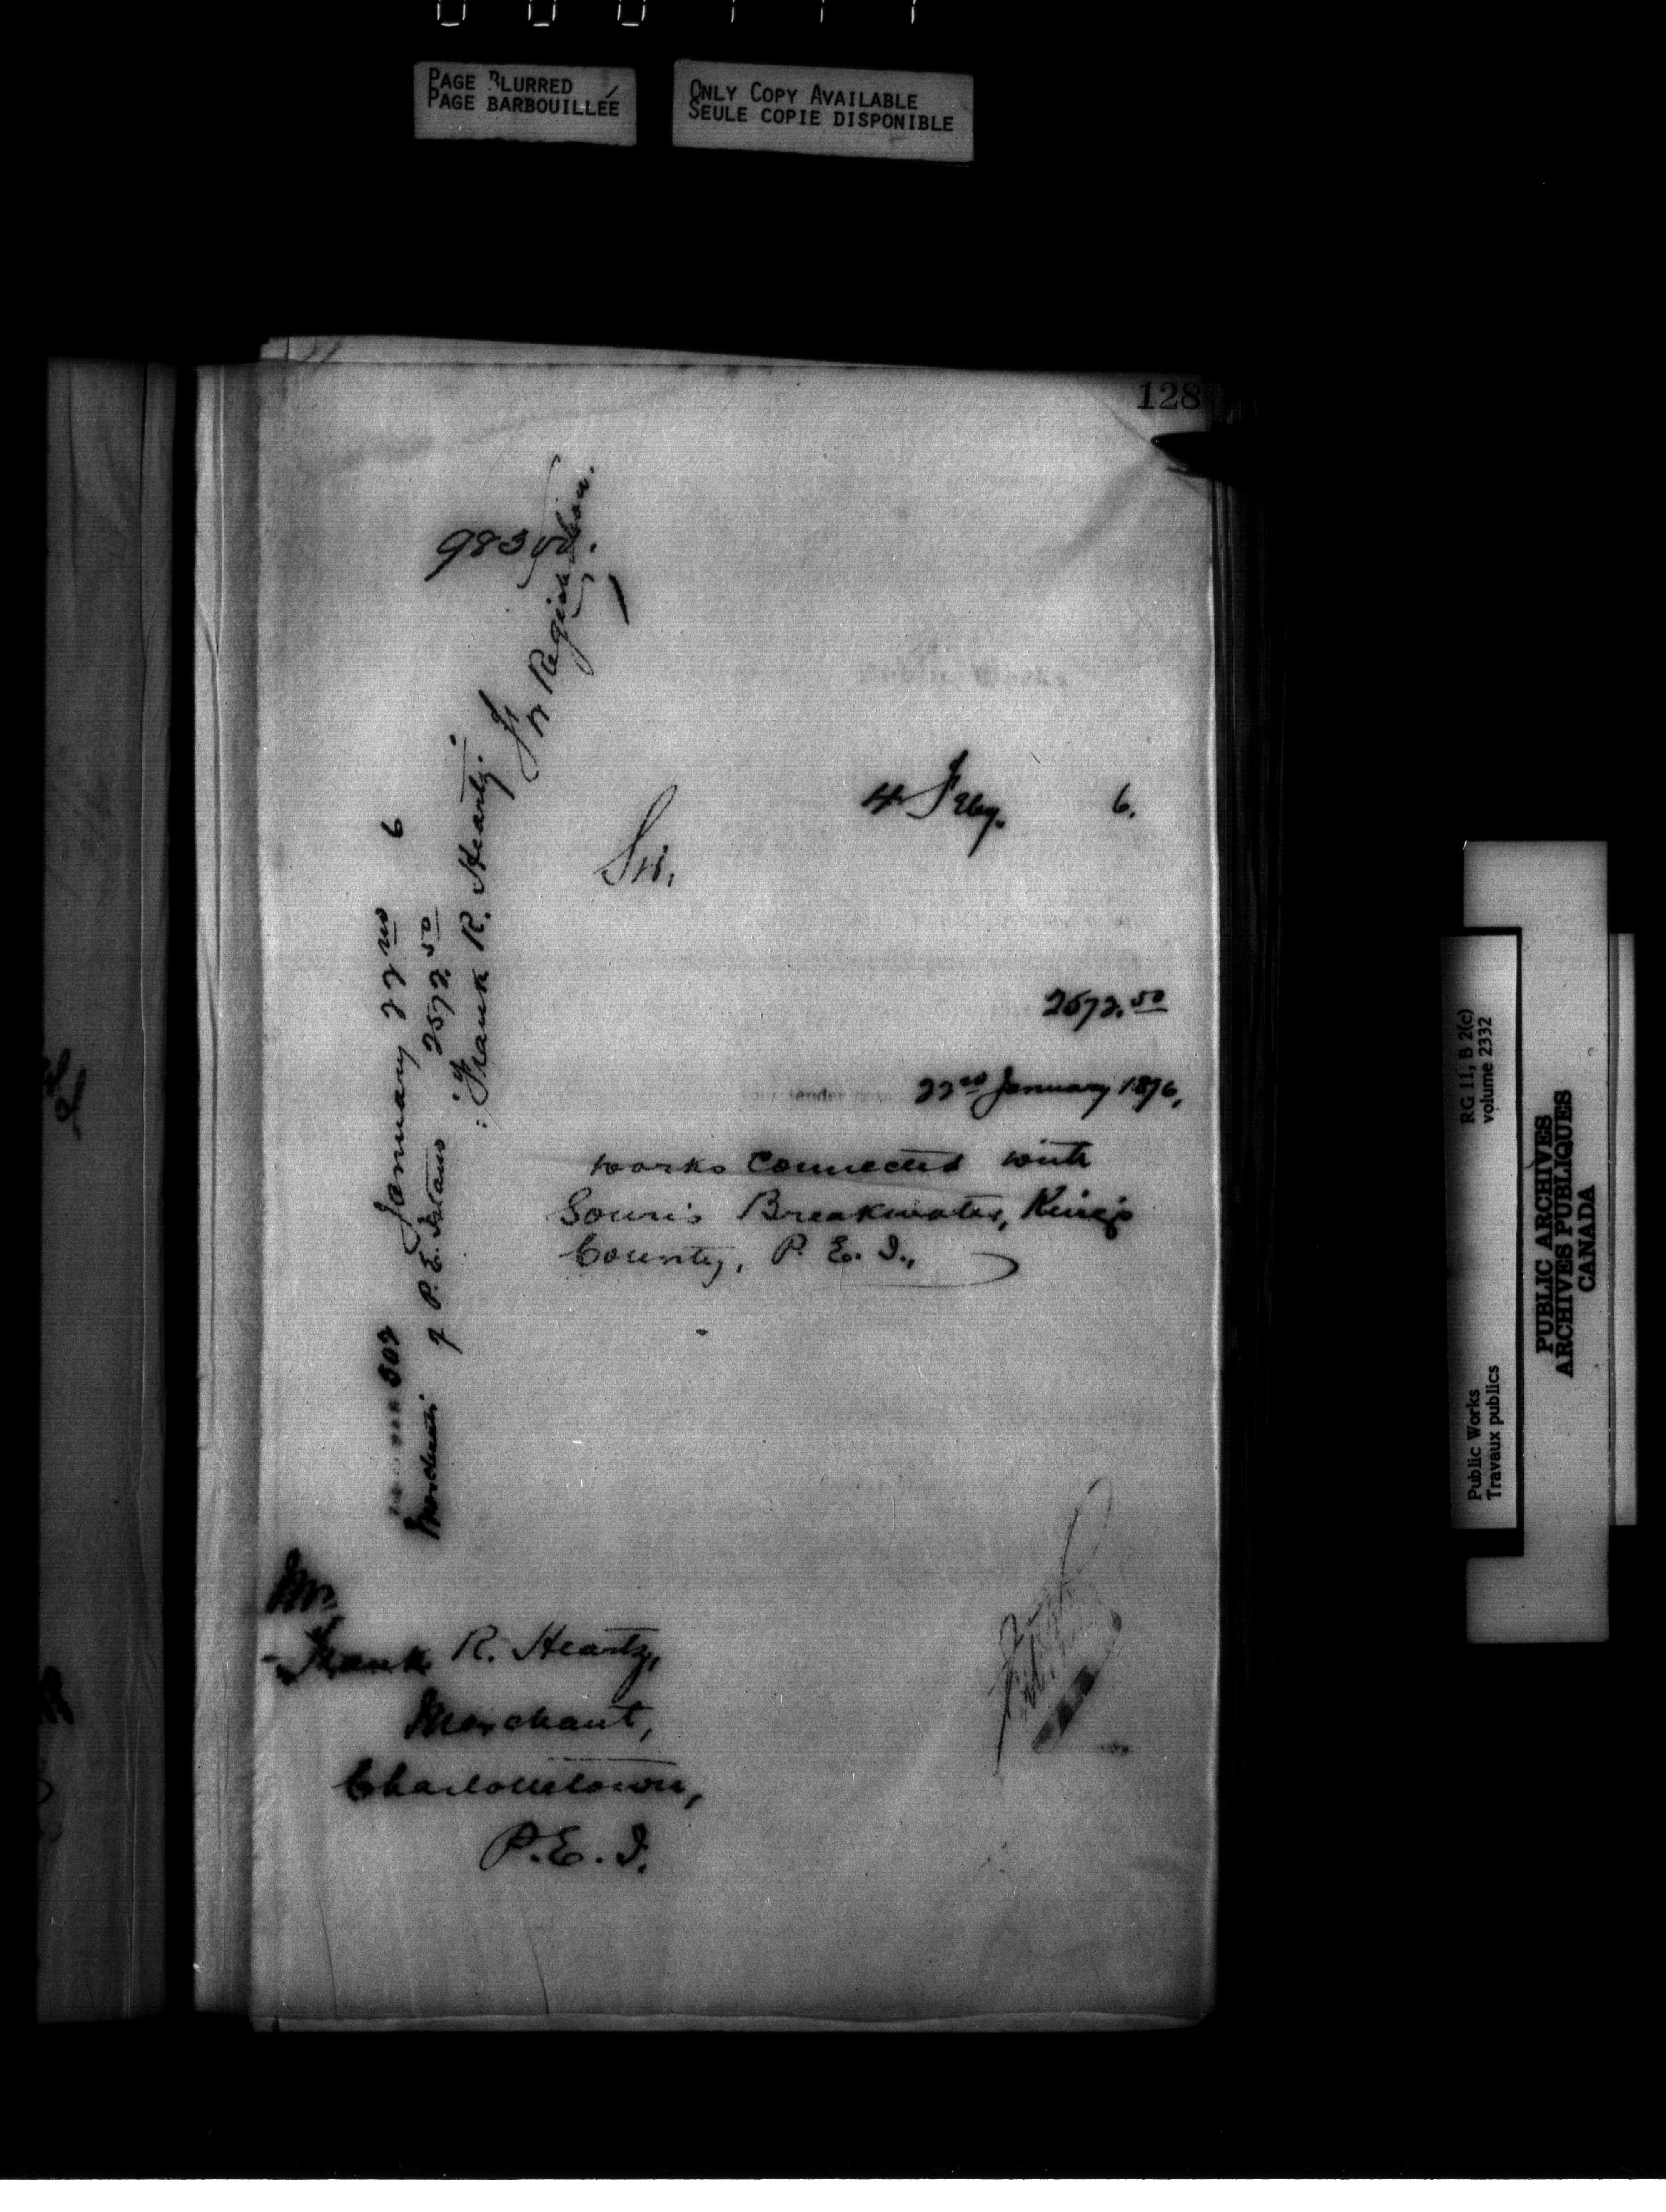 PAGE BLURRED
PAGE BARBOUILLÉE
ONLY COPY AVAILABLE
SEULE COPIE DISPONIBLE
128
9835
4 Feby. 6.
Sir,
2572.50
22nd January 1876,
works connected with
Souris Breakwater, King's
County, P. E. I.,
Mr.
Frank R. Heartz,
Merchant,
Charlottetown,
P. E. I.
January 22nd 6
of P. E. Island 2572.50
Frank R. Heartz.
RG 11, B 2(c)
volume 2332
Public Works
Travaux publics
PUBLIC ARCHIVES
ARCHIVES PUBLIQUES
CANADA